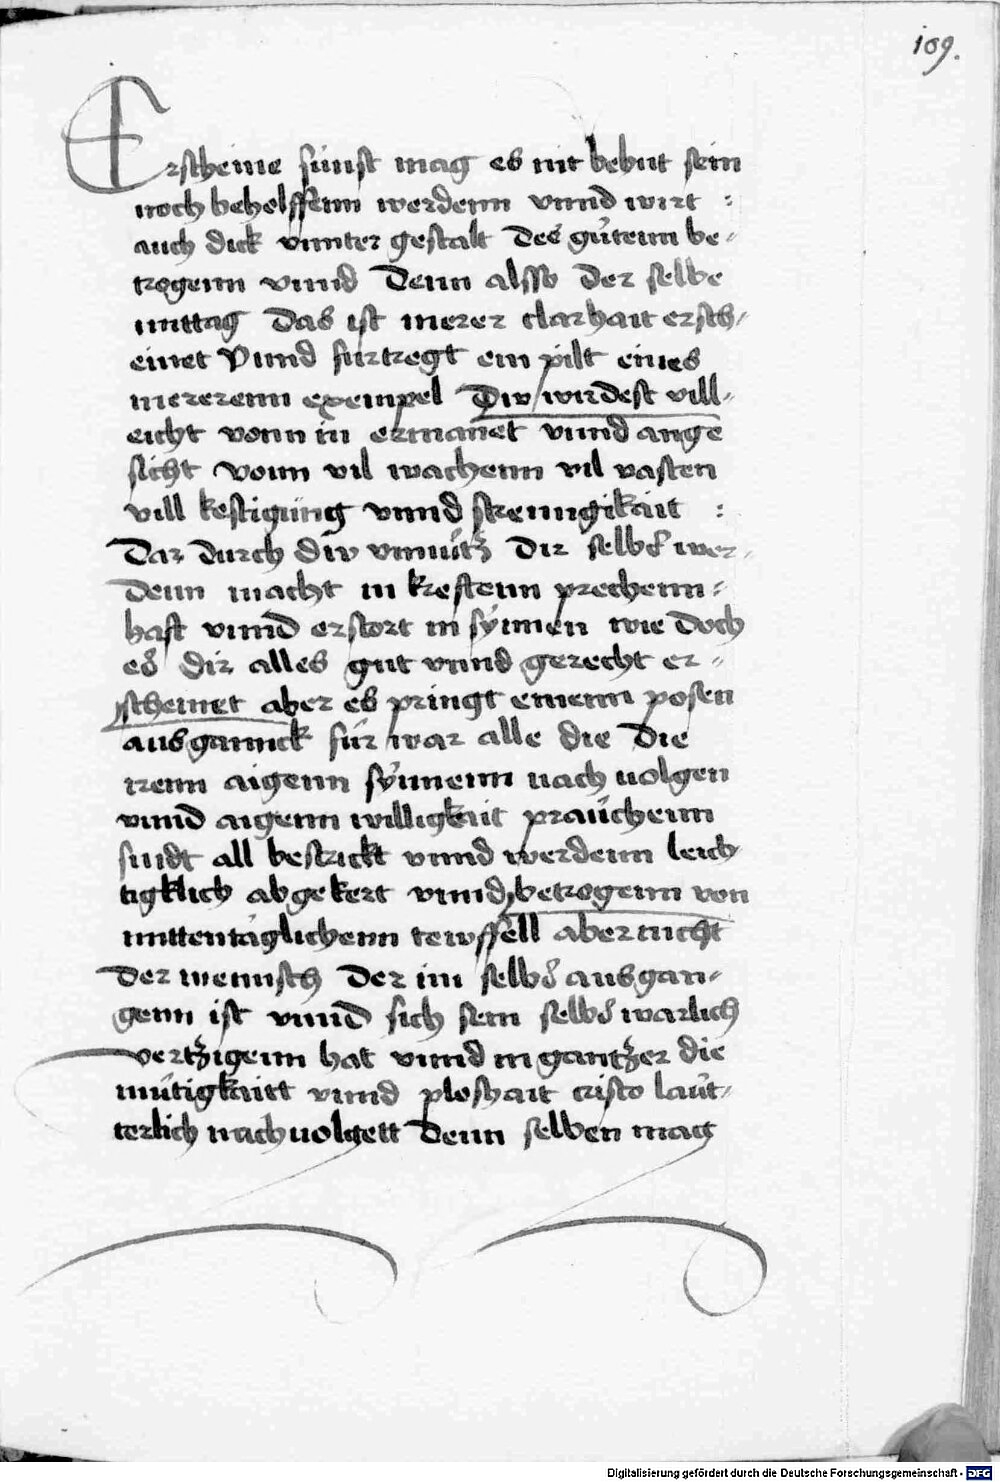 109.
Erscheine sünst mag es nit behut sein
noch behelffenn werdenn vnnd wirt :
auch dick vnnter gestalt des gütenn be-
trogenn vnnd Denn alsso der selbe
mittag Das ist merer clarhait ersch-
einet Vnnd furtregt ein pilt eines
mererenn exempel Diw wirdest vill-
eicht vonn in ermanet vnnd ange
sicht vonn vil wachenn vil vasten
vill kestigung vnnd strenngikait :
Dar durch diw vnnütz Dir selbs wer-
denn macht in krefftenn prechenn-
hafft vnnd erstort in synnen wie Doch
es dir alles gut vnnd gerecht er-
scheinet aber es pringt einenn posen
ausganck für war alle die Die
irenn aigenn synnenn nach volgen
vnnd aigenn willigkait praüchenn
sindt all bestrickt vnnd werdenn leich
tigklich abgekert vnnd betrogenn von
mittentäglichenn tewffell aber nicht
Der mennsch Der im selbs ausgan-
genn ist vnnd sich sein selbs warlich
vertzigenn hat vnnd in gantzer die
mütigkaitt vnnd ploshait cristo laüt-
terlich nachuolgett Denn selben mag
Digitalisierung gefördert durch die Deutsche Forschungsgemeinschaft - DFG